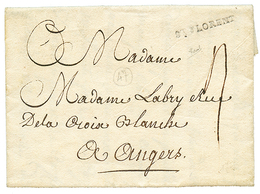 Sᵗ FLORENT
A Madame
Madame Labry Rue
De la Croix Blanche
A Angers.